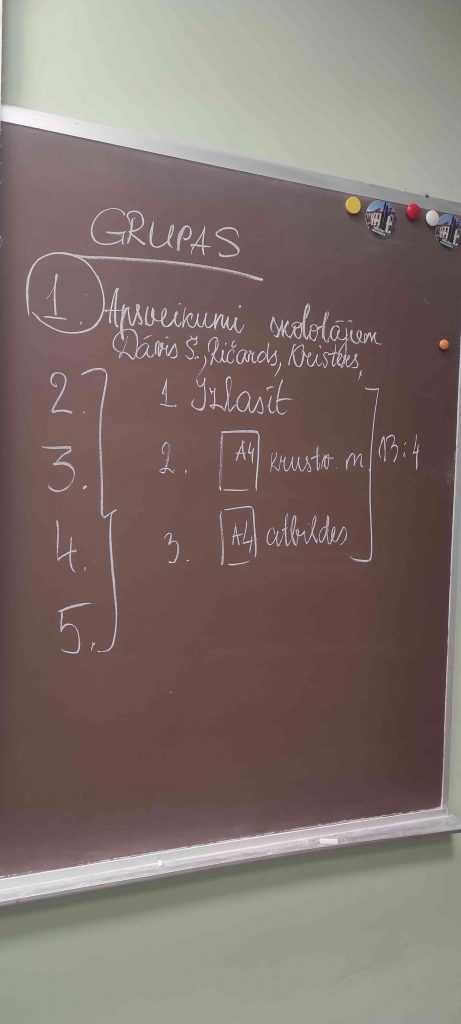 GRUPAS
1. Apsveikumi skolotājiem
Dāvis Š., Ričards, Kristers,
2. 1 Izlasīt
3. 2. A4 krustv. m 13:4
4. 3. A4 atbildes
5.